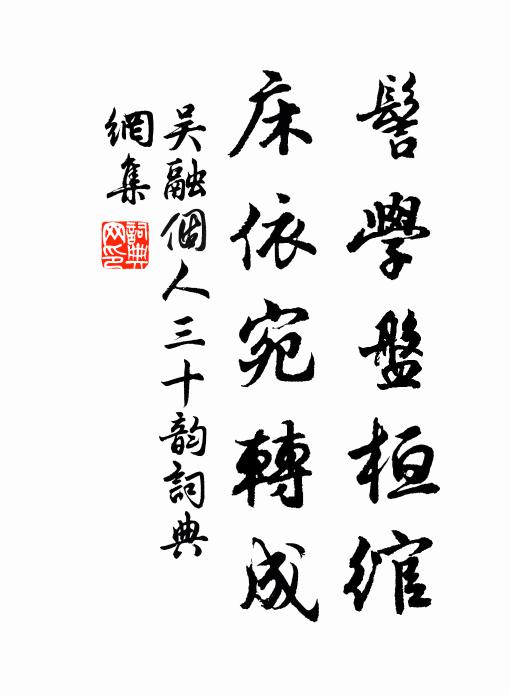 髻學盤桓綰
床依宛轉成
吴融個人三十韵詞典
網集
詞典
网印